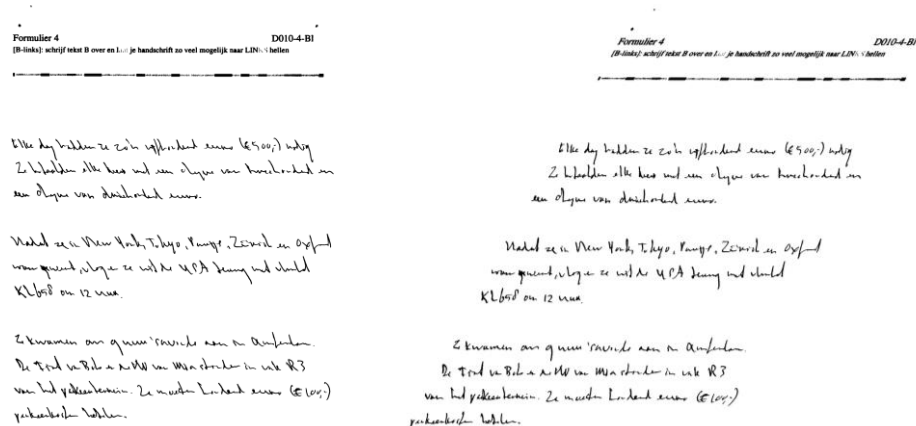 Formulier 4 D010-4-Bl
[B-links]: schrijf tekst B over en je handschrift zo veel mogelijk naar LINKS hellen
Elke dag hadden ze zo'n vijfhonderd euro (€500,-) nodig
Ze betaalden elke keer met een cheque van tweehonderd en
een cheque van driehonderd euro.
Nadat ze in New York, Tokyo, Parijs, Zürich en Oxford
waren geweest, vlogen ze uit de USA terug met vlucht
KL658 om 12 uur.
Ze kwamen om 9 uur 's avonds aan in Amsterdam.
De Ford van Bob en de MW van stonden in vak R3
van het parkeerterrein. Ze moesten honderd euro (€100,-)
parkeerkosten betalen.
Formulier 4 D010-4-Bl
[B-links]: schrijf tekst B over en je handschrift zo veel mogelijk naar LINKS hellen
Elke dag hadden ze zo'n vijfhonderd euro (€500,-) nodig
Ze betaalden elke keer met een cheque van tweehonderd en
een cheque van driehonderd euro.
Nadat ze in New York, Tokyo, Parijs, Zürich en Oxford
waren geweest, vlogen ze uit de USA terug met vlucht
KL658 om 12 uur.
Ze kwamen om 9 uur 's avonds aan in Amsterdam.
De Ford van Bob en de MW van stonden in vak R3
van het parkeerterrein. Ze moesten honderd euro (€100,-)
parkeerkosten betalen.